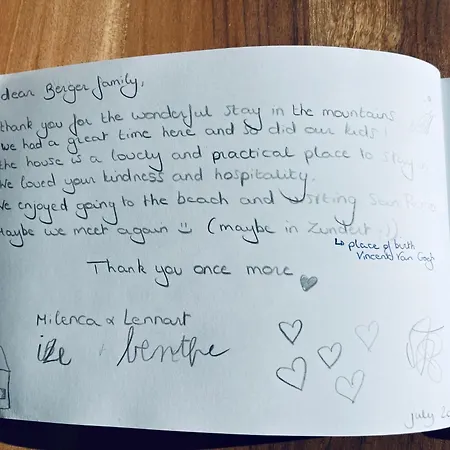 dear Berger family,
thank you for the wonderful stay in the mountains
we had a great time here and so did our kids!
the house is a lovely and practical place to stay.
We loved your kindness and hospitality.
We enjoyed going to the beach and visiting
Maybe we meet again (maybe in Zundert ;)).
↳ place of birth
Vincent Van Gogh
Thank you once more ♥
Milenca & Lennart
ize + benthe
july